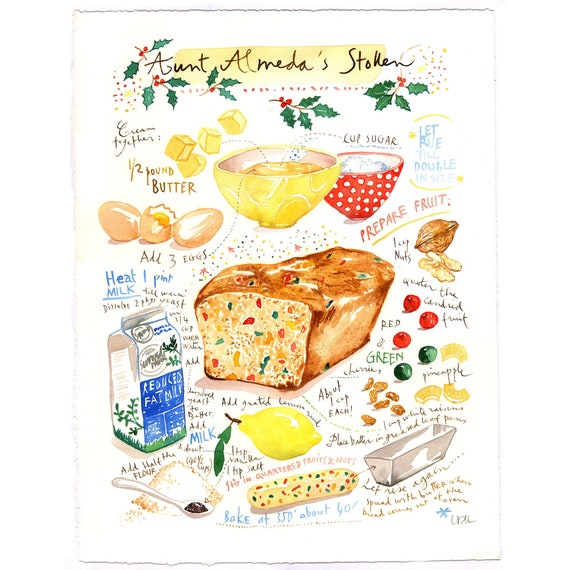 Aunt Almeda's Stollen
Cream
together:
1/2 pound
BUTTER
CUP SUGAR
LET
RISE
TILL
DOUBLE
IN SIZE
Add 3 EGGS
PREPARE FRUIT:
1 cup
Nuts
quarter the
candied
fruit
Heat 1 pint
MILK till warm
Dissolve 2 pkgs yeast
in
1/4
cup
warm
water
Add
REDUCED
FAT MILK
RED
&
GREEN
cherries
pineapple
About
1 cup
EACH!
1 cup white raisins
dissolved
yeast
to
batter.
Add
MILK
Add grated lemon
1 tsp
vanilla
1 tsp salt
Place batter in greased loaf pans
Add Half the
FLOUR
About
Stir in QUARTERED FRUITS & NUTS
Let rise again
spread with butter when
bread comes out of oven
BAKE at 350° about 40'